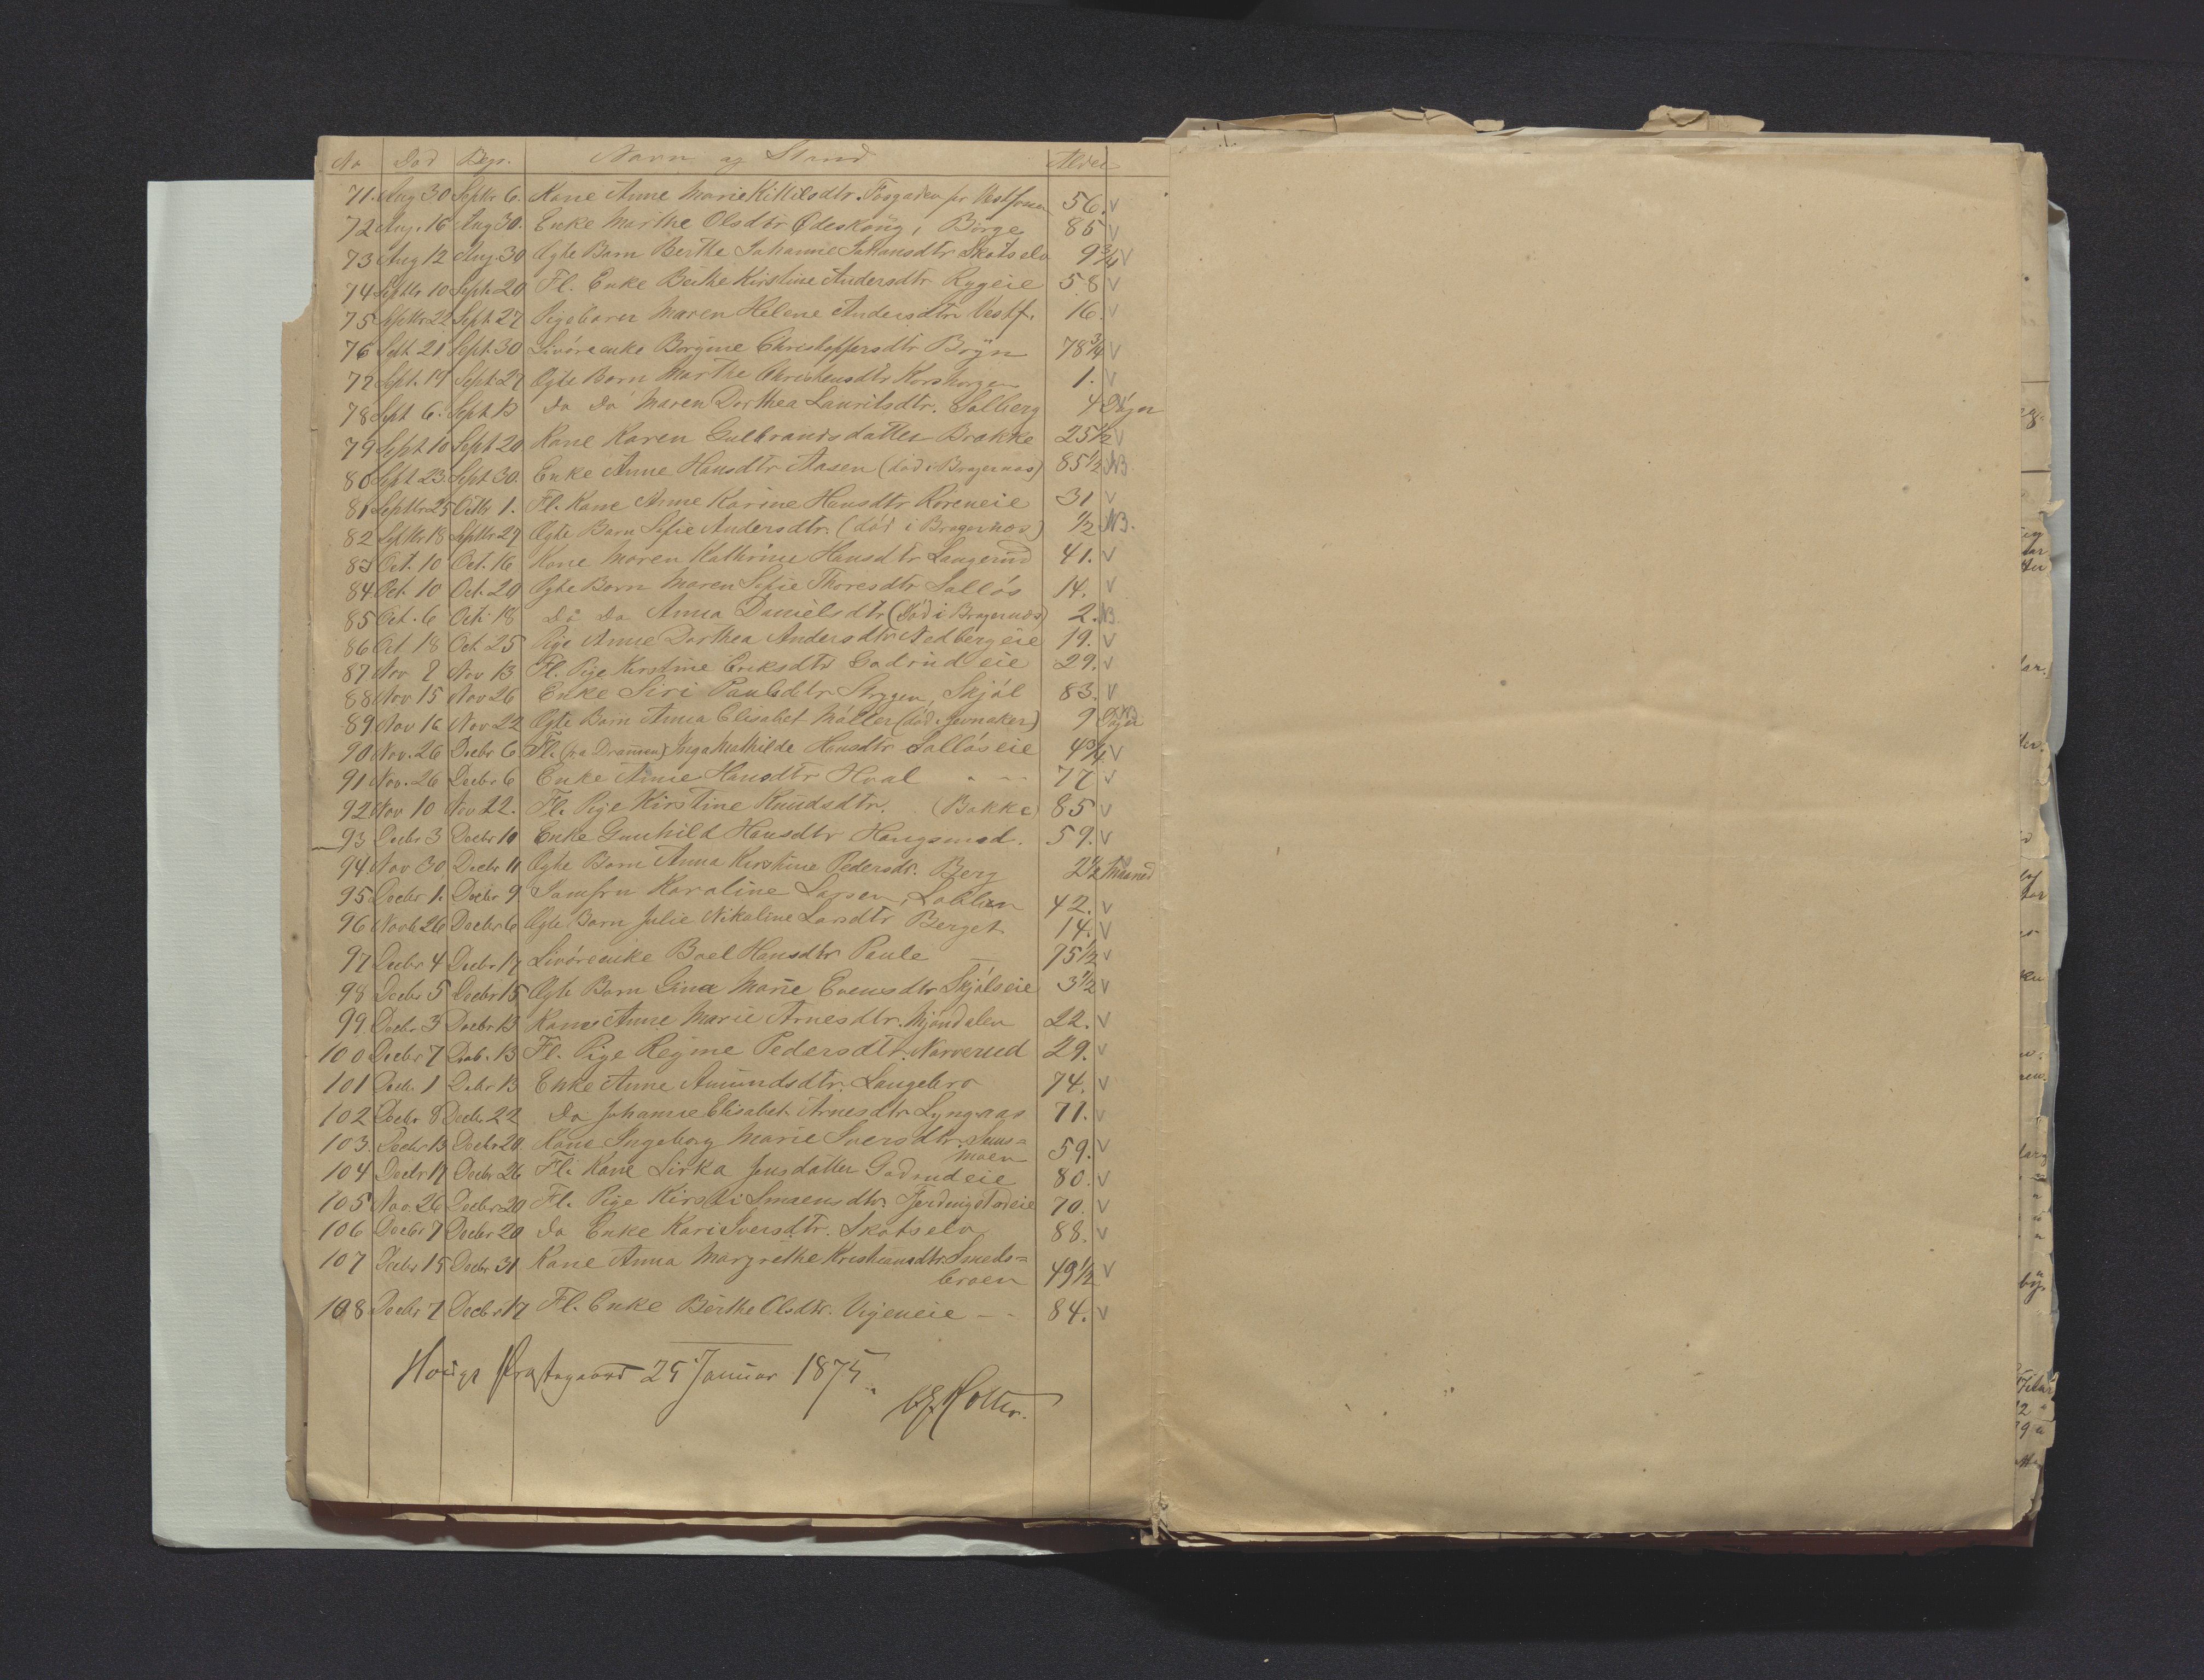 No Død Begr. Navn og Stand Alder
71. Aug 30 Septbr 6. Kone Anne Marie Kittilsdtr. Fosgaden pr Vestfossen 56. V
72 Aug. 16 Aug 30. Enke Marthe Olsdtr Ødeskoug, Börge 85 V
73 Aug 12 Aug. 30 Ægte Barn Berthe Johanne Johansdtr Skotselv 9 3/4 V
74 Septbr 10 Septr 20 Fl. Enke Berthe Kirstine Andersdtr Rygeie 58 V
75 Septbr 22 Sept 27 Pigebarn Maren Helene Andersdtr Vestf. 16. V
76 Sept. 21 Sept. 30 Livöreenke Borgine Christoffersdtr Böÿn 78 3/4 V
77 Sept. 19 Sept. 27 Ægte Barn Marthe Christensdtr Korshorgen 1. V
78 Sept 6. Sept 13 Do Do Maren Dorthea Lauritsdtr. Solberg 4 Dage
79 Sept 10 Sept 20. Kone Karen Gulbrandsdatter Brekke 25 1/2 V
80 Sept 23. Sept 30. Enke Anne Hansdtr Aasen (död i Bragernæs) 85 1/2 NB
81 Septbr 25 Octbr 1. Fl. Kone Anne Karine Hansdtr Roreneie 31 V
82 Septbr 18 Septbr 27 Ægte Barn Sofie Andersdtr. (död i Bragernæs) 1/2 NB.
83 Oct. 10 Oct. 16 Kone Maren Kathrine Hansdtr Langerud 41. V
84 Oct. 10 Oct. 20 Ægte Barn Maren Sofie Thoresdtr Sallös 14. V
85 Oct. 6 Oct. 18 Do Do Anna Danielsdtr (död i Bragernæs) 2. NB
86 Oct. 18 Oct. 25 Pige Anne Dorthea Andersdtr Nedbergeie 19. V
87 Nov 7 Nov 13 Fl. Pige Kirstine Eriksdtr Gadrudeie 29. V
88 Nov 15 Nov 26 Enke Siri Paulsdtr Strygen, Skjöl 83. V
89 Nov 16 Nov 22 Ægte Barn Anna Elisabet Möller (död i Jevnaker) 9 Dage NB
90 Nov. 26 Decbr 6 Fl. (fra Drammen) Inga Mathilde Hansdtr Sallöseie 4 3/4 V
91 Nov. 26 Decbr 6 Enke Anne Hansdtr Hval 77 V
92 Nov 10 Nov 22. Fl. Pige Kirstine Knudsdtr. (Bakke) 85 V
93 Decbr 3 Decbr 10 Enke Gunhild Hansdtr Hougsmed. 59. V
94 Nov 30 Decbr 11 Ægte Barn Anna Kirstine Pedersdtr. Berg 2 1/2 Maaned
95 Decbr 1. Decbr 9 Jomfru Karoline Larsen, Loblien 42. V
96 Novb 26 Decbr 6 Ægte Barn Julie Nikoline Larsdtr Berget 14. V
97 Decbr 4 Decbr 17 Livöreenke Boel Hansdtr Poule 75 1/2 V
98 Decbr 5 Decbr 15 Ægte Barn Gina Marie Evensdtr Skjölseie 3 1/2 V
99. Decbr 3 Decbr 13 Kone Anne Marie Arnesdtr. Mjöndalen 22. V
100 Decbr 7 Decb. 13 Fl. Pige Regine Pedersdtr. Narverud 29. V
101 Decbr 1 Decbr 13 Enke Anne Amundsdtr. Langebro 74. V
102 Decbr 8 Decbr 22 Do Johanne Elisabet Arnesdtr Lyngaas 71. V
103. Decbr 13 Decbr 20 Kone Ingeborg Marie Iversdtr Muus=
moen 59. V
104 Decbr 17 Decbr 26 Fl. Kone Lirka Jensdatter Gadrudeie 80. V
105 Nov 26 Decbr 20 Fl. Pige Kirsti Simensdtr Fjerdingstadeie 70. V
106 Decbr 7 Decbr 20 Do Enke Kari Iversdtr. Skotselv 88. V
107 Decbr 15 Decbr 31 Kone Anna Margrethe Kristiansdtr. Smeds=
broen 49 1/2 V
108 Decbr 7 Decbr 17 Fl. Enke Berthe Olsdtr. Vigeneie 84. V
Hougs Præstegaard 25 Januar 1875.
Holter.